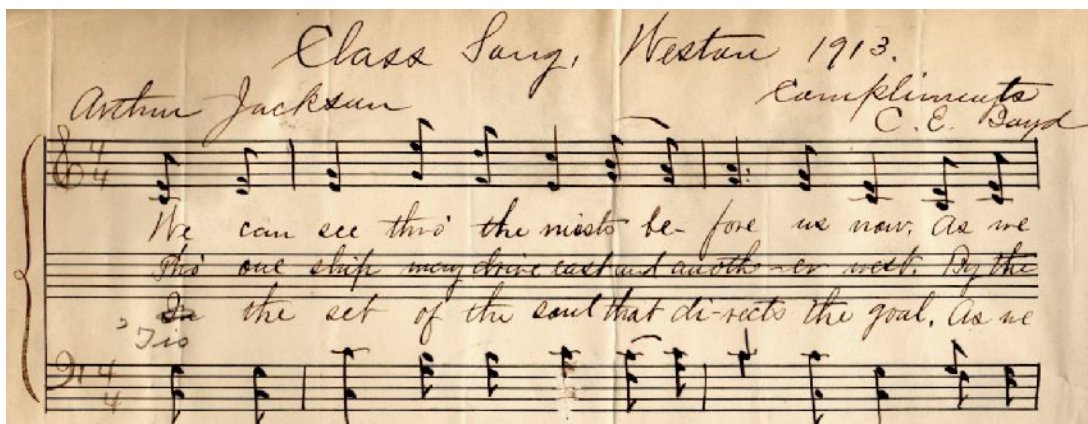 Class Song, Weston 1913.
Arthur Jackson
Compliments
C. E. Boyd
4 4
We can see thro' the mists be- fore us now. As we
Tho' one ship may drive east and anoth-er west. By the
the set of the soul that di-rects the goal. As we
'Tis
4 4